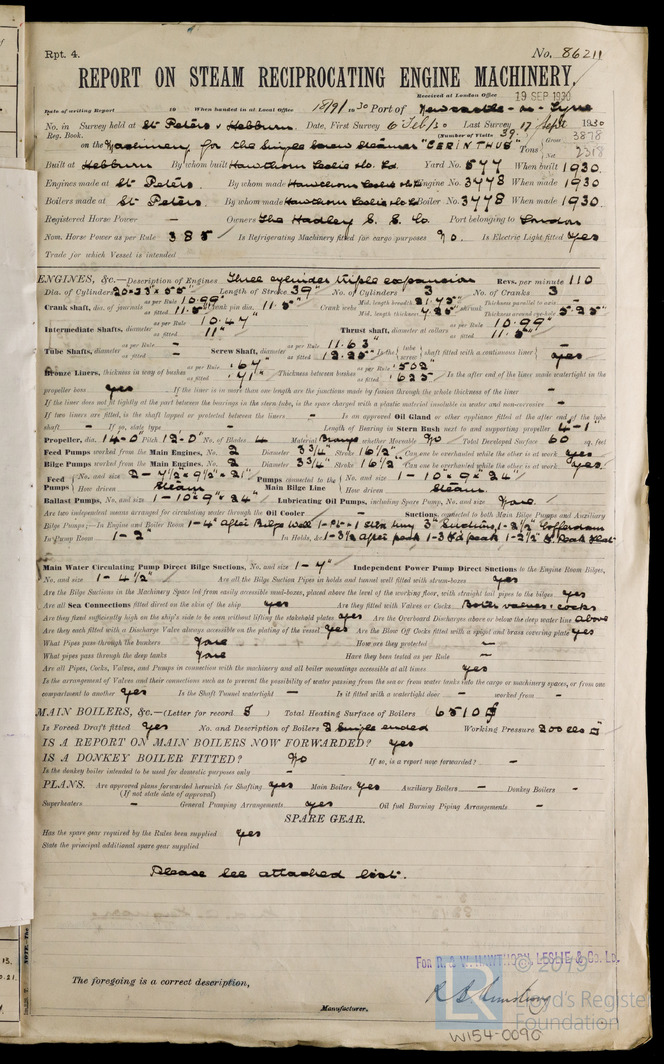 Rpt. 4.
No. 86211
REPORT ON STEAM RECIPROCATING ENGINE MACHINERY.
Received at London Office 19 SEP 1930
Date of writing Report 19 When handed in at Local Office 18/9/1930 Port of Newcastle-on-Tyne
No. in Survey held at St Peters & Hebburn. Date, First Survey 6 Feb/30 Last Survey 17 Sept 1930
Reg. Book. (Number of Visits 39)
on the Machinery for the Single Screw Steamer "CERINTHUS" Tons Gross 3878
Net 2318
Built at Hebburn By whom built Hawthorn Leslie & Co. Ld. Yard No. 577 When built 1930.
Engines made at St Peters. By whom made Hawthorn Leslie & Co Ld Engine No. 3778 When made 1930
Boilers made at St Peters. By whom made Hawthorn Leslie & Co Ld Boiler No. 3778 When made 1930
Registered Horse Power - Owners The Hadley S. S. Co. Port belonging to London
Nom. Horse Power as per Rule 385 Is Refrigerating Machinery fitted for cargo purposes No. Is Electric Light fitted Yes
Trade for which Vessel is intended
ENGINES, &c.—Description of Engines Three cylinder triple expansion Revs. per minute 110
Dia. of Cylinders 20"-33"x55" Length of Stroke 39" No. of Cylinders 3 No. of Cranks 3
Crank shaft, dia. of journals as per Rule 10.99" as fitted 11.5" Crank pin dia. 11.5" Crank webs Mid. length breadth 21.75" Thickness parallel to axis -
Mid. length thickness 7.25" Thickness around eye-hole 5.25"
Intermediate Shafts, diameter as per Rule 10.47" as fitted 11" Thrust shaft, diameter at collars as per Rule 10.99" as fitted 11.5"
Tube Shafts, diameter as per Rule - as fitted - Screw Shaft, diameter as per Rule 11.63" as fitted 12.25" Is the tube screw shaft fitted with a continuous liner yes
Bronze Liners, thickness in way of bushes as per Rule .67" as fitted .71" Thickness between bushes as per Rule .502 as fitted .625 Is the after end of the liner made watertight in the
propeller boss yes If the liner is in more than one length are the junctions made by fusion through the whole thickness of the liner -
If the liner does not fit tightly at the part between the bearings in the stern tube, is the space charged with a plastic material insoluble in water and non-corrosive -
If two liners are fitted, is the shaft lapped or protected between the liners - Is an approved Oil Gland or other appliance fitted at the after end of the tube
shaft - If so, state type - Length of Bearing in Stern Bush next to and supporting propeller 4'-1"
Propeller, dia. 14'-0" Pitch 12'-0" No. of Blades 4 Material Bronze whether Moveable No Total Developed Surface 60 sq. feet
Feed Pumps worked from the Main Engines, No. 2 Diameter 3¾" Stroke 16½" Can one be overhauled while the other is at work yes
Bilge Pumps worked from the Main Engines, No. 2 Diameter 3¾" Stroke 16½" Can one be overhauled while the other is at work yes.
Feed Pumps No. and size 2-7½"x9½"x21" How driven Steam Pumps connected to the Main Bilge Line No. and size 1-10"x9"x24" How driven Steam.
Ballast Pumps, No. and size 1-10"x9"x24" Lubricating Oil Pumps, including Spare Pump, No. and size None.
Are two independent means arranged for circulating water through the Oil Cooler - Suctions, connected to both Main Bilge Pumps and Auxiliary
Bilge Pumps;—In Engine and Boiler Room 1-4" after Bilge Well 1-Pt+1 Stbd 3" suctions, 1-2½" Cofferdam
In Pump Room 1-2" In Holds, &c. 1-3½" after peak
Main Water Circulating Pump Direct Bilge Suctions, No. and size 1-7" Independent Power Pump Direct Suctions to the Engine Room Bilges,
No. and size 1-4½" Are all the Bilge Suction Pipes in holds and tunnel well fitted with strum-boxes yes
Are the Bilge Suctions in the Machinery Space led from easily accessible mud-boxes, placed above the level of the working floor, with straight tail pipes to the bilges yes
Are all Sea Connections fitted direct on the skin of the ship yes Are they fitted with Valves or Cocks Both valves & cocks
Are they fixed sufficiently high on the ship's side to be seen without lifting the stokehold plates yes Are the Overboard Discharges above or below the deep water line above
Are they each fitted with a Discharge Valve always accessible on the plating of the vessel yes Are the Blow Off Cocks fitted with a spigot and brass covering plate yes
What Pipes pass through the bunkers None How are they protected -
What pipes pass through the deep tanks None Have they been tested as per Rule -
Are all Pipes, Cocks, Valves, and Pumps in connection with the machinery and all boiler mountings accessible at all times yes
Is the arrangement of Valves and their connections such as to prevent the possibility of water passing from the sea or from water tanks into the cargo or machinery spaces, or from one
compartment to another yes Is the Shaft Tunnel watertight - Is it fitted with a watertight door - worked from -
MAIN BOILERS, &c.—(Letter for record S ) Total Heating Surface of Boilers 6510
Is Forced Draft fitted yes No. and Description of Boilers 2 Single ended Working Pressure 200 lbs
IS A REPORT ON MAIN BOILERS NOW FORWARDED? yes
IS A DONKEY BOILER FITTED? No If so, is a report now forwarded? -
Is the donkey boiler intended to be used for domestic purposes only -
PLANS. Are approved plans forwarded herewith for Shafting yes Main Boilers yes Auxiliary Boilers - Donkey Boilers -
(If not state date of approval)
Superheaters - General Pumping Arrangements yes Oil fuel Burning Piping Arrangements -
SPARE GEAR.
Has the spare gear required by the Rules been supplied yes
State the principal additional spare gear supplied
Please see attached list.
For R. & W. HAWTHORN, LESLIE & Co. Ld.
The foregoing is a correct description,
R B Armstrong
Manufacturer.
© 2019
Lloyd's Register
Foundation
W154-0096